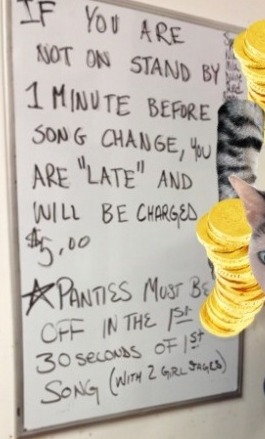 IF YOU ARE
NOT ON STAND BY
1 MINUTE BEFORE
SONG CHANGE, YOU
ARE "LATE" AND
WILL BE CHARGED
$5.00
☆PANTIES MUST BE
OFF IN THE 1ST
30 SECONDS OF 1ST
SONG (WITH 2 GIRL STAGES)